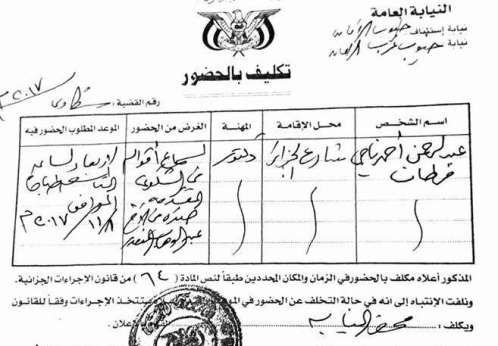 النيابة العامة
نيابة إستئناف جنوب الأمانة
نيابة جنوب غرب الأمانة
تكليف بالحضور
رقم القضية: شكاوى ٢٠١٧م
اسم الشخص محل الإقامة المهنة الغرض من الحضور الموعد المطلوب الحضور فيه
عبدالرحمن أحمد ناجي فرحان
شارع الجزائر
دكتور
لسماع أقوالكم
في الشكوى
المقدمة
ضده من الأخ
الأربعاء الساعة
التاسعة صباحا
الموافق
١١/٨/٢٠١٧م
المذكور أعلاه مكلف بالحضور في الزمان والمكان المحددين طبقاً لنص المادة (٦٤) من قانون الإجراءات الجزائية.
ونلفت الإنتباه إلى انه في حالة التخلف عن الحضور في ستتخذ الإجراءات وفقاً للقانون
ويكلف: محضر النيابة إعلان.